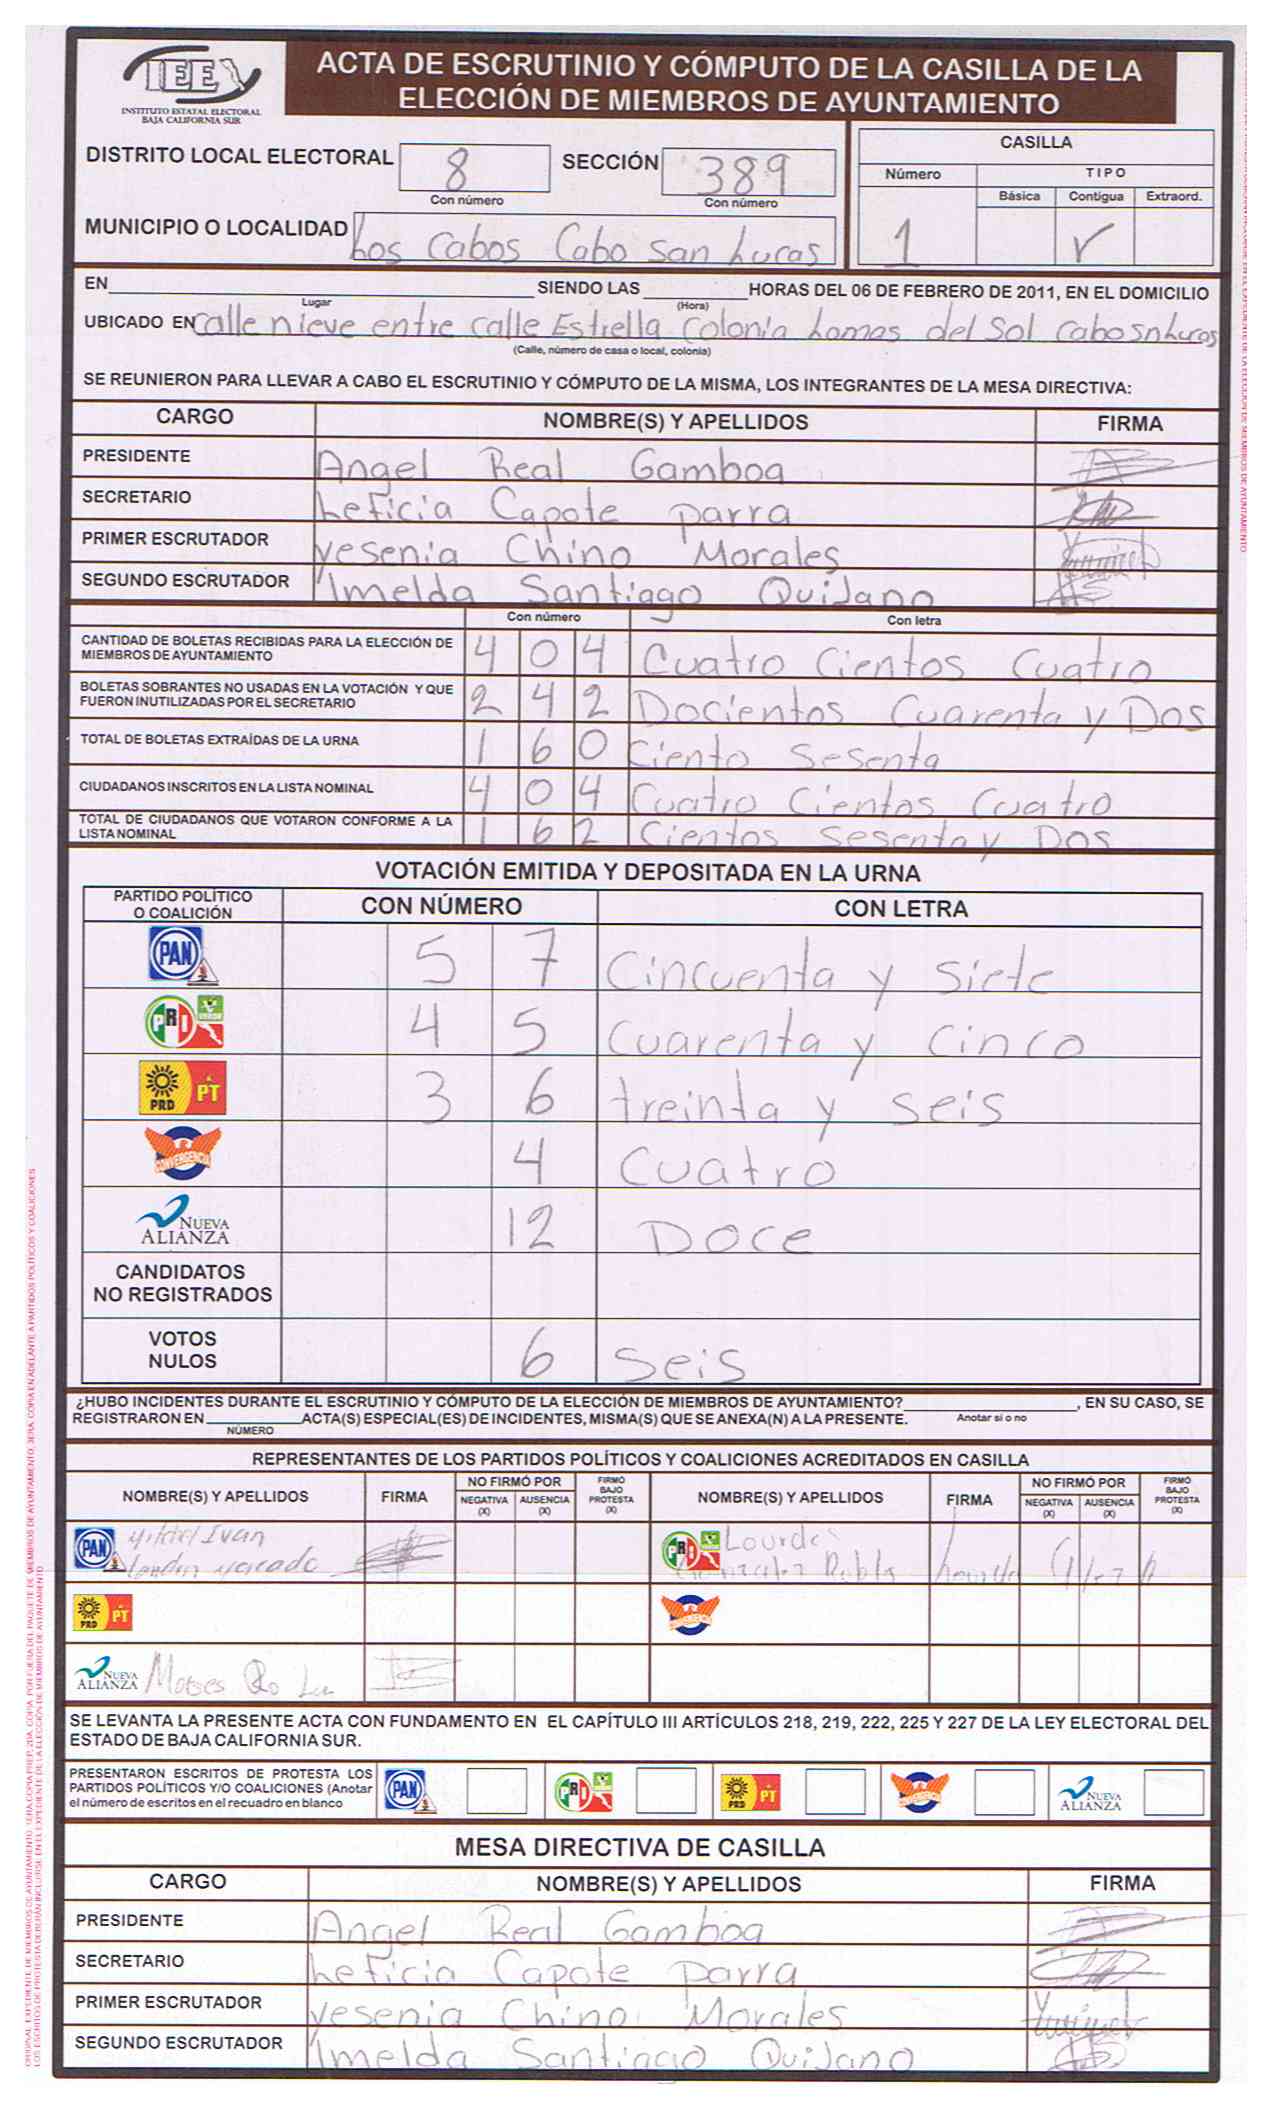 IEE
INSTITUTO ESTATAL ELECTORAL
BAJA CALIFORNIA SUR
ACTA DE ESCRUTINIO Y CÓMPUTO DE LA CASILLA DE LA
ELECCIÓN DE MIEMBROS DE AYUNTAMIENTO
DISTRITO LOCAL ELECTORAL 8 SECCIÓN 389
Con número Con número
MUNICIPIO O LOCALIDAD Los Cabos Cabo San Lucas
CASILLA
Número TIPO
Básica Contigua Extraord.
1 ✓
EN SIENDO LAS HORAS DEL 06 DE FEBRERO DE 2011, EN EL DOMICILIO
Lugar (Hora)
UBICADO EN calle nieve entre calle Estrella Colonia Lomas del Sol Cabo Sn Lucas
(Calle, número de casa o local, colonia)
SE REUNIERON PARA LLEVAR A CABO EL ESCRUTINIO Y CÓMPUTO DE LA MISMA, LOS INTEGRANTES DE LA MESA DIRECTIVA:
CARGO NOMBRE(S) Y APELLIDOS FIRMA
PRESIDENTE Angel Real Gamboa
SECRETARIO Leticia Capote parra
PRIMER ESCRUTADOR yesenia Chino Morales
SEGUNDO ESCRUTADOR Imelda Santiago Quijano
Con número Con letra
CANTIDAD DE BOLETAS RECIBIDAS PARA LA ELECCIÓN DE
MIEMBROS DE AYUNTAMIENTO 4 0 4 Cuatro Cientos Cuatro
BOLETAS SOBRANTES NO USADAS EN LA VOTACIÓN Y QUE
FUERON INUTILIZADAS POR EL SECRETARIO 2 4 2 Docientos Cuarenta y Dos
TOTAL DE BOLETAS EXTRAÍDAS DE LA URNA 1 6 0 Ciento Sesenta
CIUDADANOS INSCRITOS EN LA LISTA NOMINAL 4 0 4 Cuatro Cientos Cuatro
TOTAL DE CIUDADANOS QUE VOTARON CONFORME A LA
LISTA NOMINAL 1 6 2 Cientos Sesenta y Dos
VOTACIÓN EMITIDA Y DEPOSITADA EN LA URNA
PARTIDO POLÍTICO
O COALICIÓN CON NÚMERO CON LETRA
PAN 5 7 Cincuenta y siete
PRI VERDE 4 5 Cuarenta y cinco
PRD PT 3 6 treinta y seis
CONVERGENCIA 4 Cuatro
NUEVA ALIANZA 12 DOCE
CANDIDATOS
NO REGISTRADOS
VOTOS
NULOS 6 seis
¿HUBO INCIDENTES DURANTE EL ESCRUTINIO Y CÓMPUTO DE LA ELECCIÓN DE MIEMBROS DE AYUNTAMIENTO? , EN SU CASO, SE
REGISTRARON EN ACTA(S) ESPECIAL(ES) DE INCIDENTES, MISMA(S) QUE SE ANEXA(N) A LA PRESENTE. Anotar si o no
NÚMERO
REPRESENTANTES DE LOS PARTIDOS POLÍTICOS Y COALICIONES ACREDITADOS EN CASILLA
NOMBRE(S) Y APELLIDOS FIRMA NO FIRMÓ POR NEGATIVA (X) AUSENCIA (X) FIRMÓ BAJO PROTESTA (X) NOMBRE(S) Y APELLIDOS FIRMA NO FIRMÓ POR NEGATIVA (X) AUSENCIA (X) FIRMÓ BAJO PROTESTA (X)
PAN Ivan PRI Lourdes
PRD PT CONVERGENCIA
NUEVA ALIANZA Moises
SE LEVANTA LA PRESENTE ACTA CON FUNDAMENTO EN EL CAPÍTULO III ARTÍCULOS 218, 219, 222, 225 Y 227 DE LA LEY ELECTORAL DEL
ESTADO DE BAJA CALIFORNIA SUR.
PRESENTARON ESCRITOS DE PROTESTA LOS
PARTIDOS POLÍTICOS Y/O COALICIONES (Anotar
el número de escritos en el recuadro en blanco
PAN PRI PRD PT CONVERGENCIA NUEVA ALIANZA
MESA DIRECTIVA DE CASILLA
CARGO NOMBRE(S) Y APELLIDOS FIRMA
PRESIDENTE Angel Real Gamboa
SECRETARIO Leticia Capote parra
PRIMER ESCRUTADOR yesenia Chino Morales
SEGUNDO ESCRUTADOR Imelda Santiago Quijano